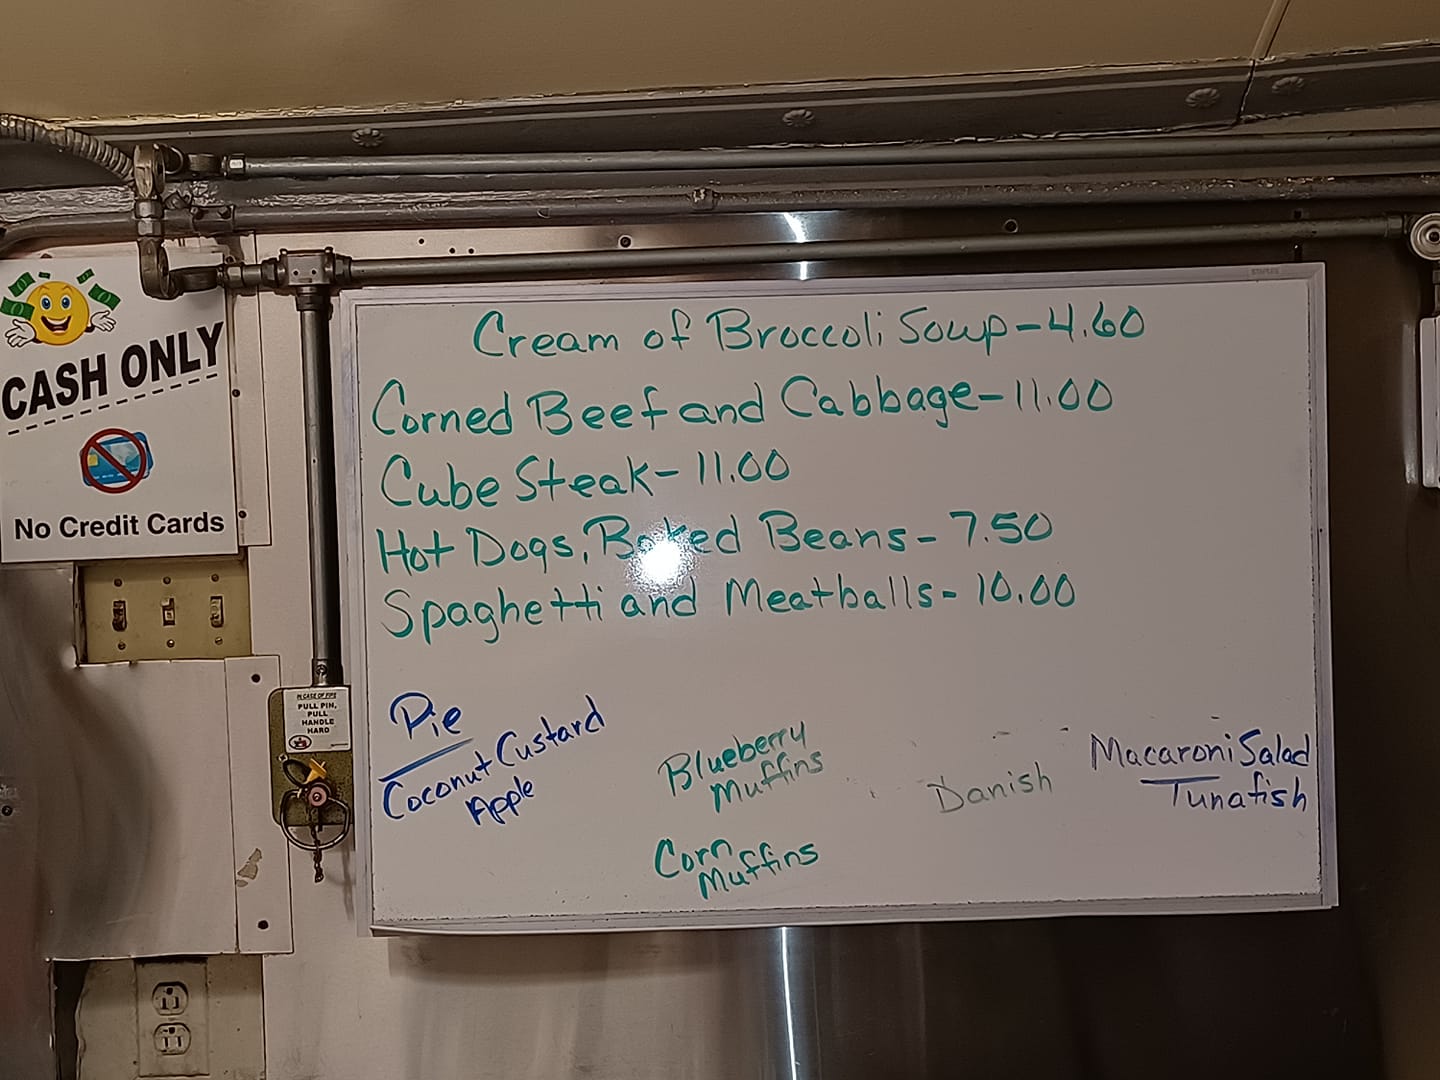 CASH ONLY
No Credit Cards
IN CASE OF FIRE
PULL PIN,
PULL
HANDLE
HARD
STAPLES
Cream of Broccoli Soup-4.60
Corned Beef and Cabbage-11.00
Cube Steak-11.00
Hot Dogs, Baked Beans-7.50
Spaghetti and Meatballs-10.00
Pie
Coconut Custard
Apple
Blueberry
Muffins
Corn
Muffins
Danish
Macaroni Salad
Tunafish